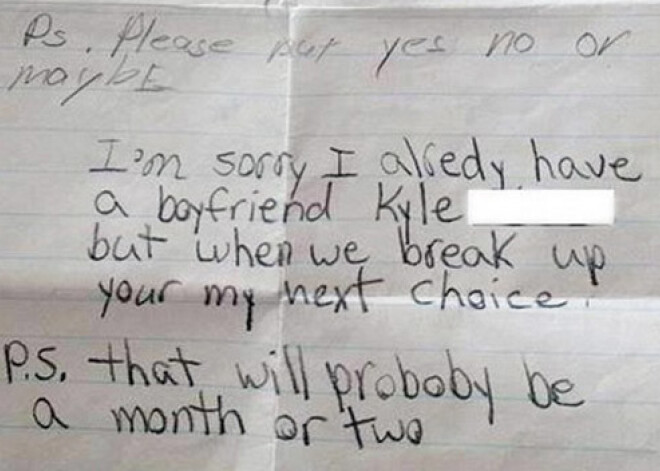 Ps. Please put yes no or
maybe
I'm sorry I alredy have
a boyfriend Kyle
but when we break up
your my next choice.
P.S. that will proboby be
a month or two